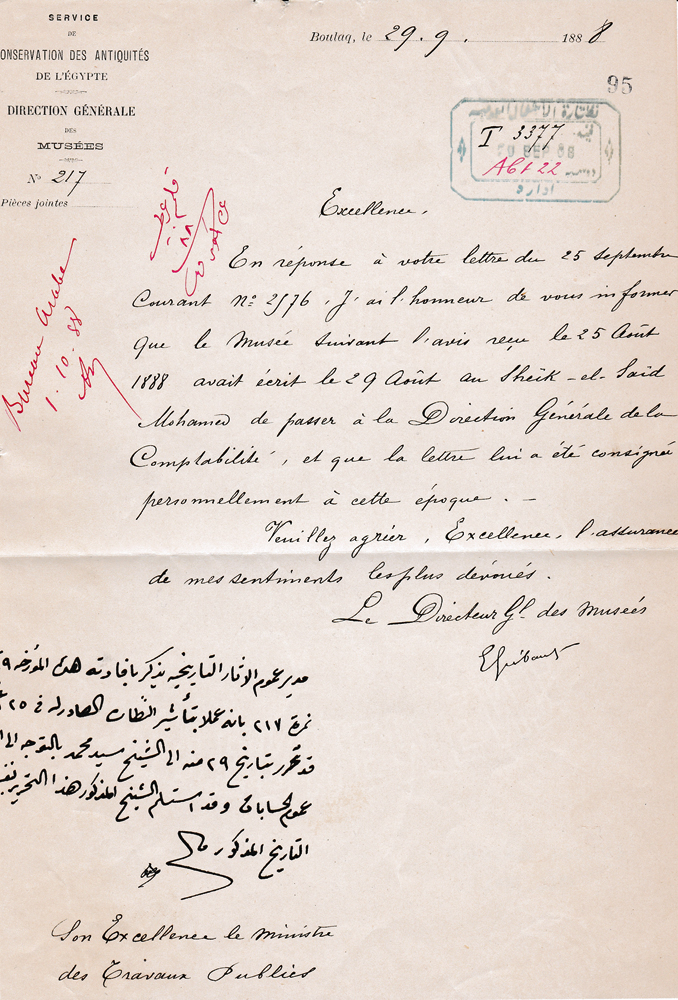 SERVICE
DE
ONSERVATION DES ANTIQUITÉS
DE L'ÉGYPTE
DIRECTION GÉNÉRALE
DES
MUSÉES
N° 217
Pièces jointes
Boulaq, le 29. 9. 1888
95
I 3377
29 SEP 88
Abt 22
ادارة
Bureau Arabe
1. 10. 88
Excellence,
En réponse à votre lettre du 25 Septembre
Courant N° 2576, J'ai l'honneur de vous informer
que le Musée suivant l'avis reçu le 25 Août
1888 avait écrit le 29 Août au Sheik-el-Saïd
Mohamed de passer à la Direction Générale de la
Comptabilité, et que la lettre lui a été consignée
personnellement à cette époque. -
Veuillez agréer, Excellence, l'assurance
de mes sentiments les plus dévoués.
Le Directeur Gl. des Musées
EGrébaut
مدير عموم الاثار التاريخيه يذكر بافادته هذه المؤرخه ٩
نمرة ٢١٧ بانه عملا بتأشير النظارة الصادر له في ٢٥
قد تحرر بتاريخ ٢٩ منه الى الشيخ سيد محمد بالتوجه الى
عموم الحسابات وقد استلم الشيخ المذكور هذا التحرير
التاريخ المذكور
Son Excellence le Ministre
des Travaux Publics